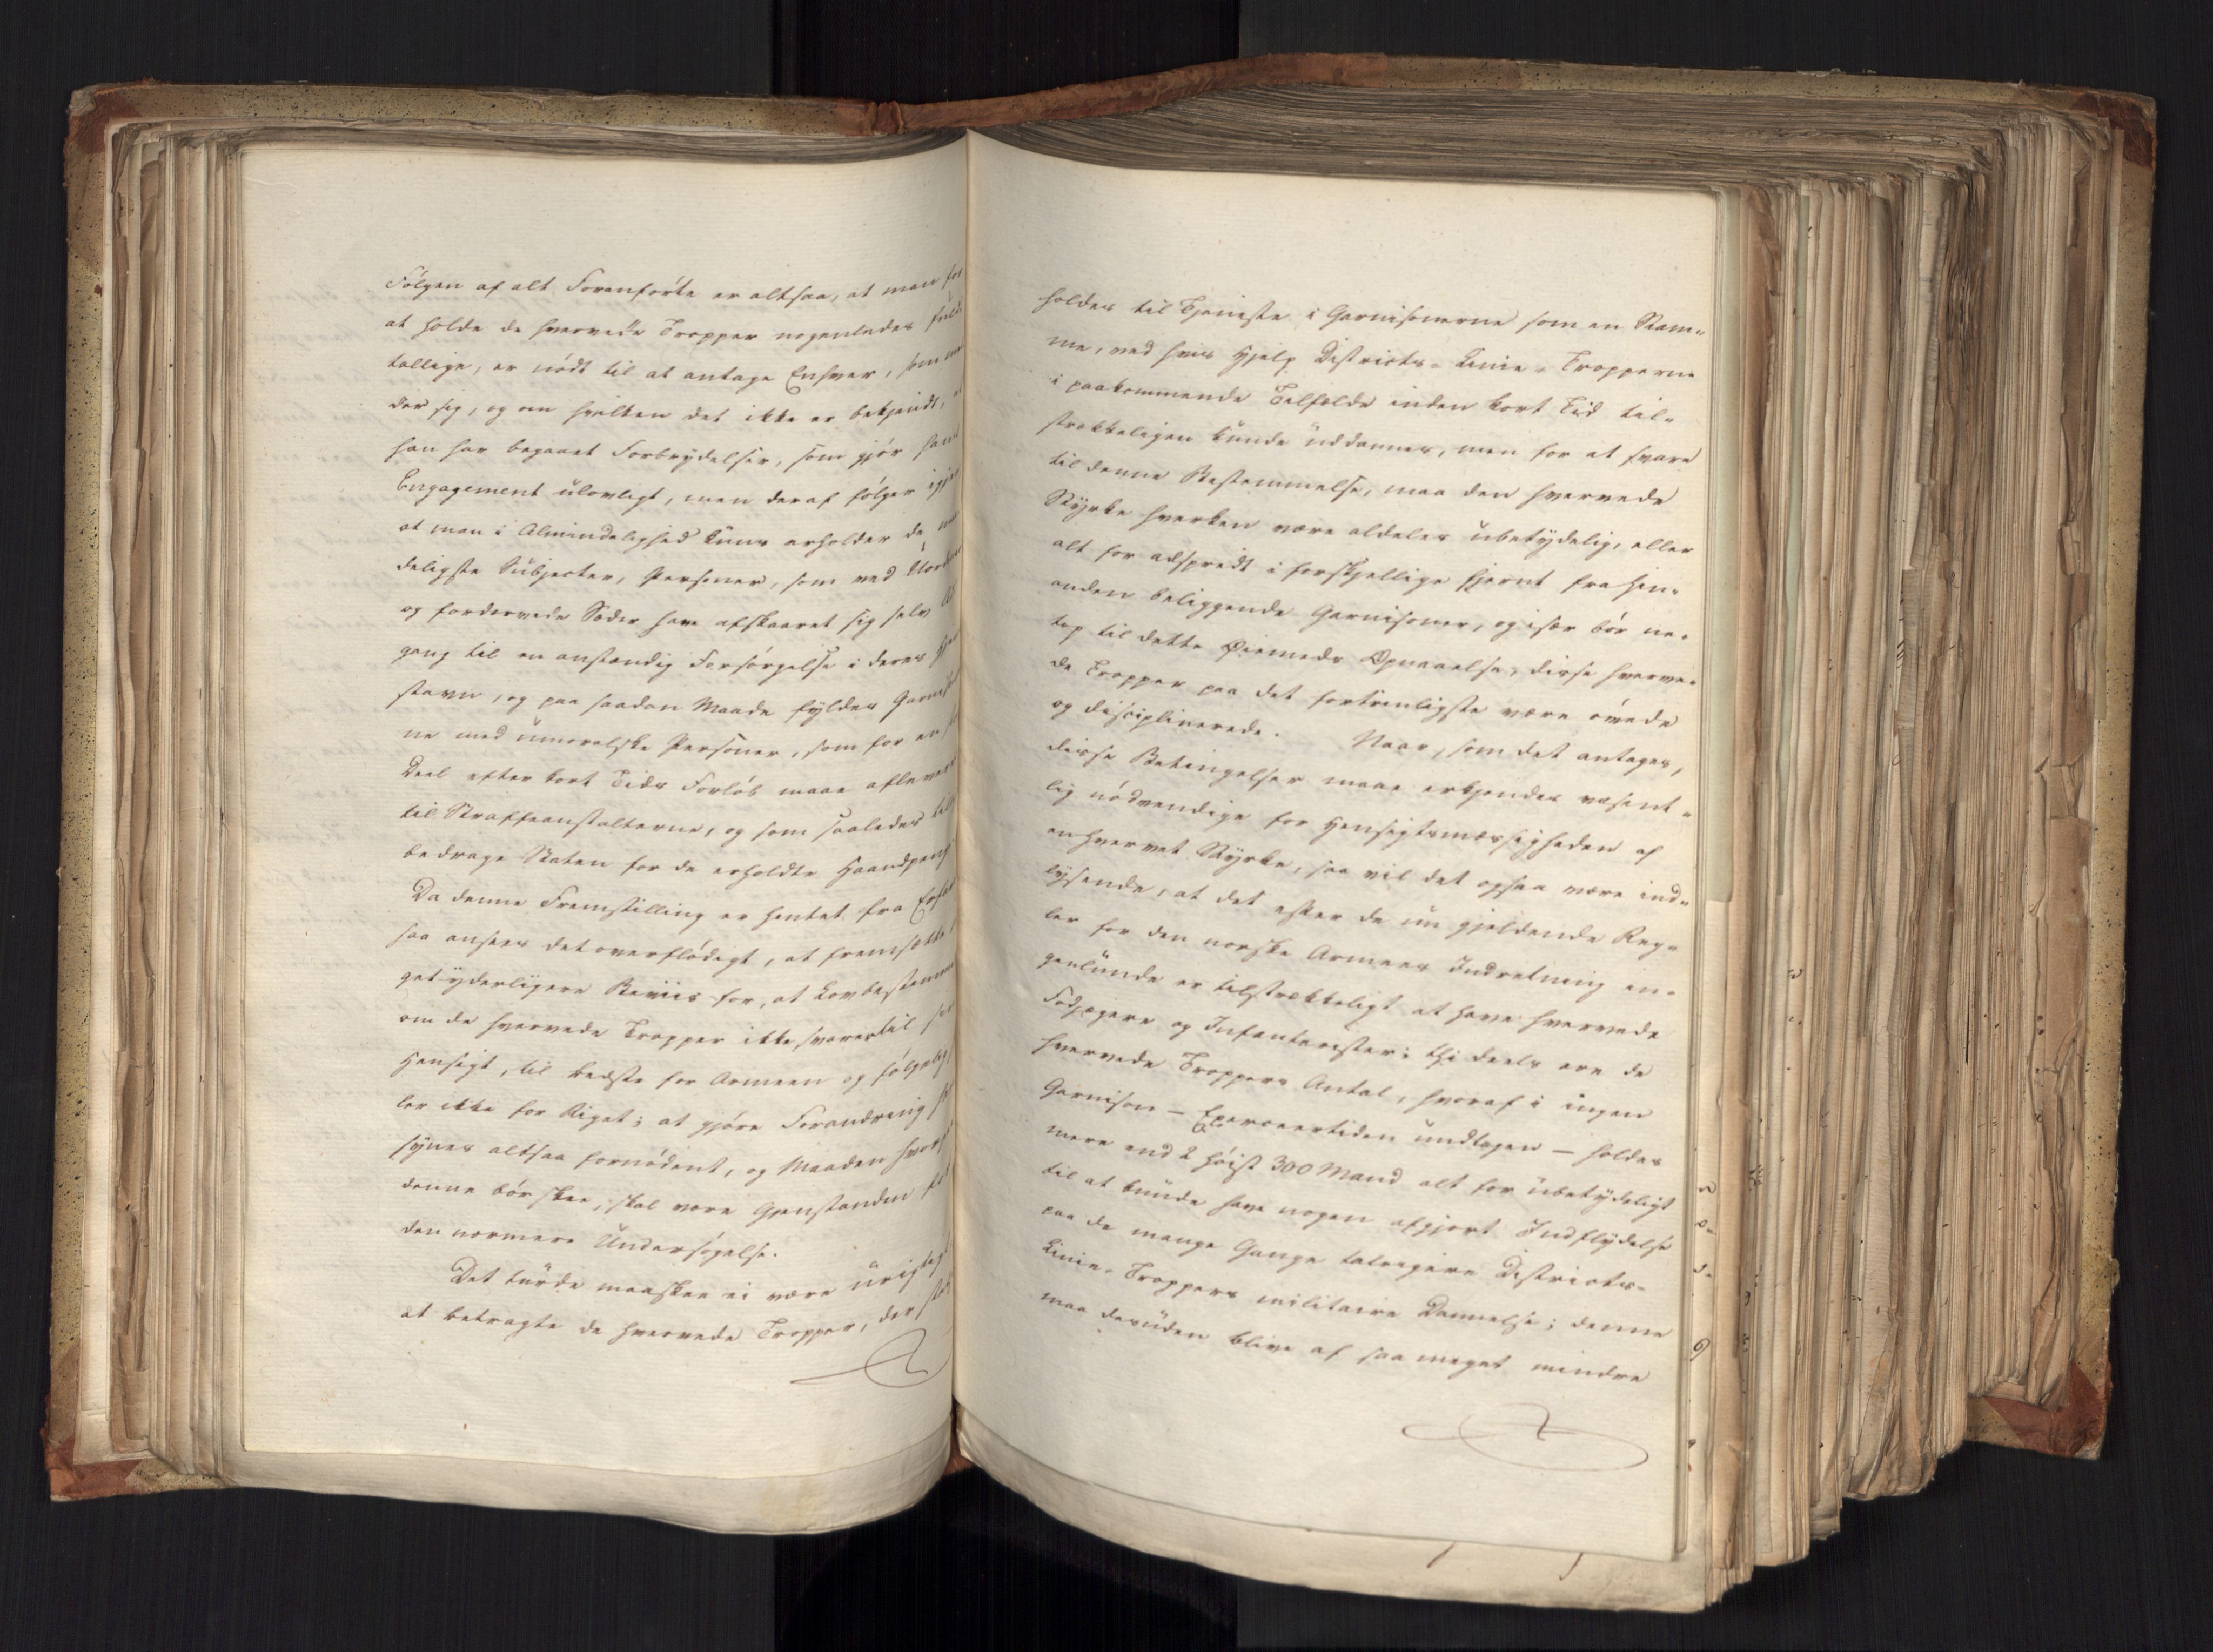 Følgen af alt Foranførte er altsaa, at man for
at holde de hvervede Tropper nogenledes fuld
tallige, er nødt til at antage Enhver, som
der sig, og om hvilken det ikke er bekjendt,
han har begaaet Forbrydelser, som gjør hans
Engagement ulovligt, men deraf følger igjen
at man i Almindelighed kuns erholder de
deligste Subjecter, Personer, som ved
og fordærvede Sæder have afskaaret sig selv
gang til en anstændig Forsørgelse i deres
stavn, og paa saadan Maade fyldes
ne med umoralske Personer, som for en
Deel efter kort Tids Forløb maae
til Straffeanstalterne, og som saaledes
bedrage Staten for de erholdte
Da denne Fremstilling er hentet fra
saa ansees det overflødigt, at fremsætte
get yderligere Beviis for, at
om de hvervede Tropper ikke svarer til
Hensigt, til bedste for Armeen og følgelig
ler ikke for Riget; at gjøre Forandring
synes altsaa fornødent, og Maaden
denne bør skee, skal være Gjenstanden
den nærmere Undersøgelse.
Det turde maaskee ei være urigtigt
at betragte de hvervede Tropper, der
holdes til Tjeneste i Garnisonerne som en Stam-
me, ved hvis Hjelp Districts-Linie-Tropperne
i paakommende Tilfælde inden kort Tid til-
strækkeligen kunde uddannes, men for at svare
til denne Bestemmelse, maa den hvervede
Styrke hverken være aldeles ubetydelig, eller
alt for adspredt i forskjellige fjernt fra hin-
anden beliggende Garnisoner, og især bør ne-
top til dette Øiemeds Opnaaelse, disse hverve-
de Tropper paa det fortrinligste være øvede
og disciplinerede. Naar, som det antages,
disse Betingelser maae erkjendes væsent-
lig nødvendige for Hensigtsmæssigheden af
en hvervet Styrke, saa vil det ogsaa være ind-
lysende, at det efter de nu gjeldende Reg-
ler for den norske Armees Indretning in-
genlunde er tilstrækkeligt at have hvervede
Fodjægere og Infanterister; thi deels ere de
hvervede Troppers Antal, hvoraf i ingen
Garnison – Exerceertiden undtagen – holdes
mere end 2 høist 300 Mand alt for ubetydeligt
til at kunde have nogen afgjort Indflydelse
paa de mange Gange talrigere Districts-
Linie-Troppers militaire Dannelse; denne
maa desuden blive af saa meget mindre